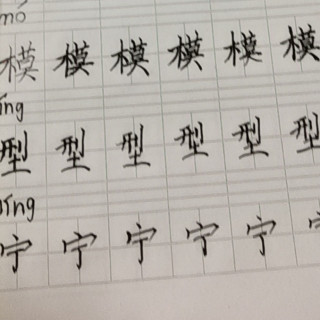 mó
模 模 模 模 模 模
íng
型 型 型 型 型 型
níng
宁 宁 宁 宁 宁